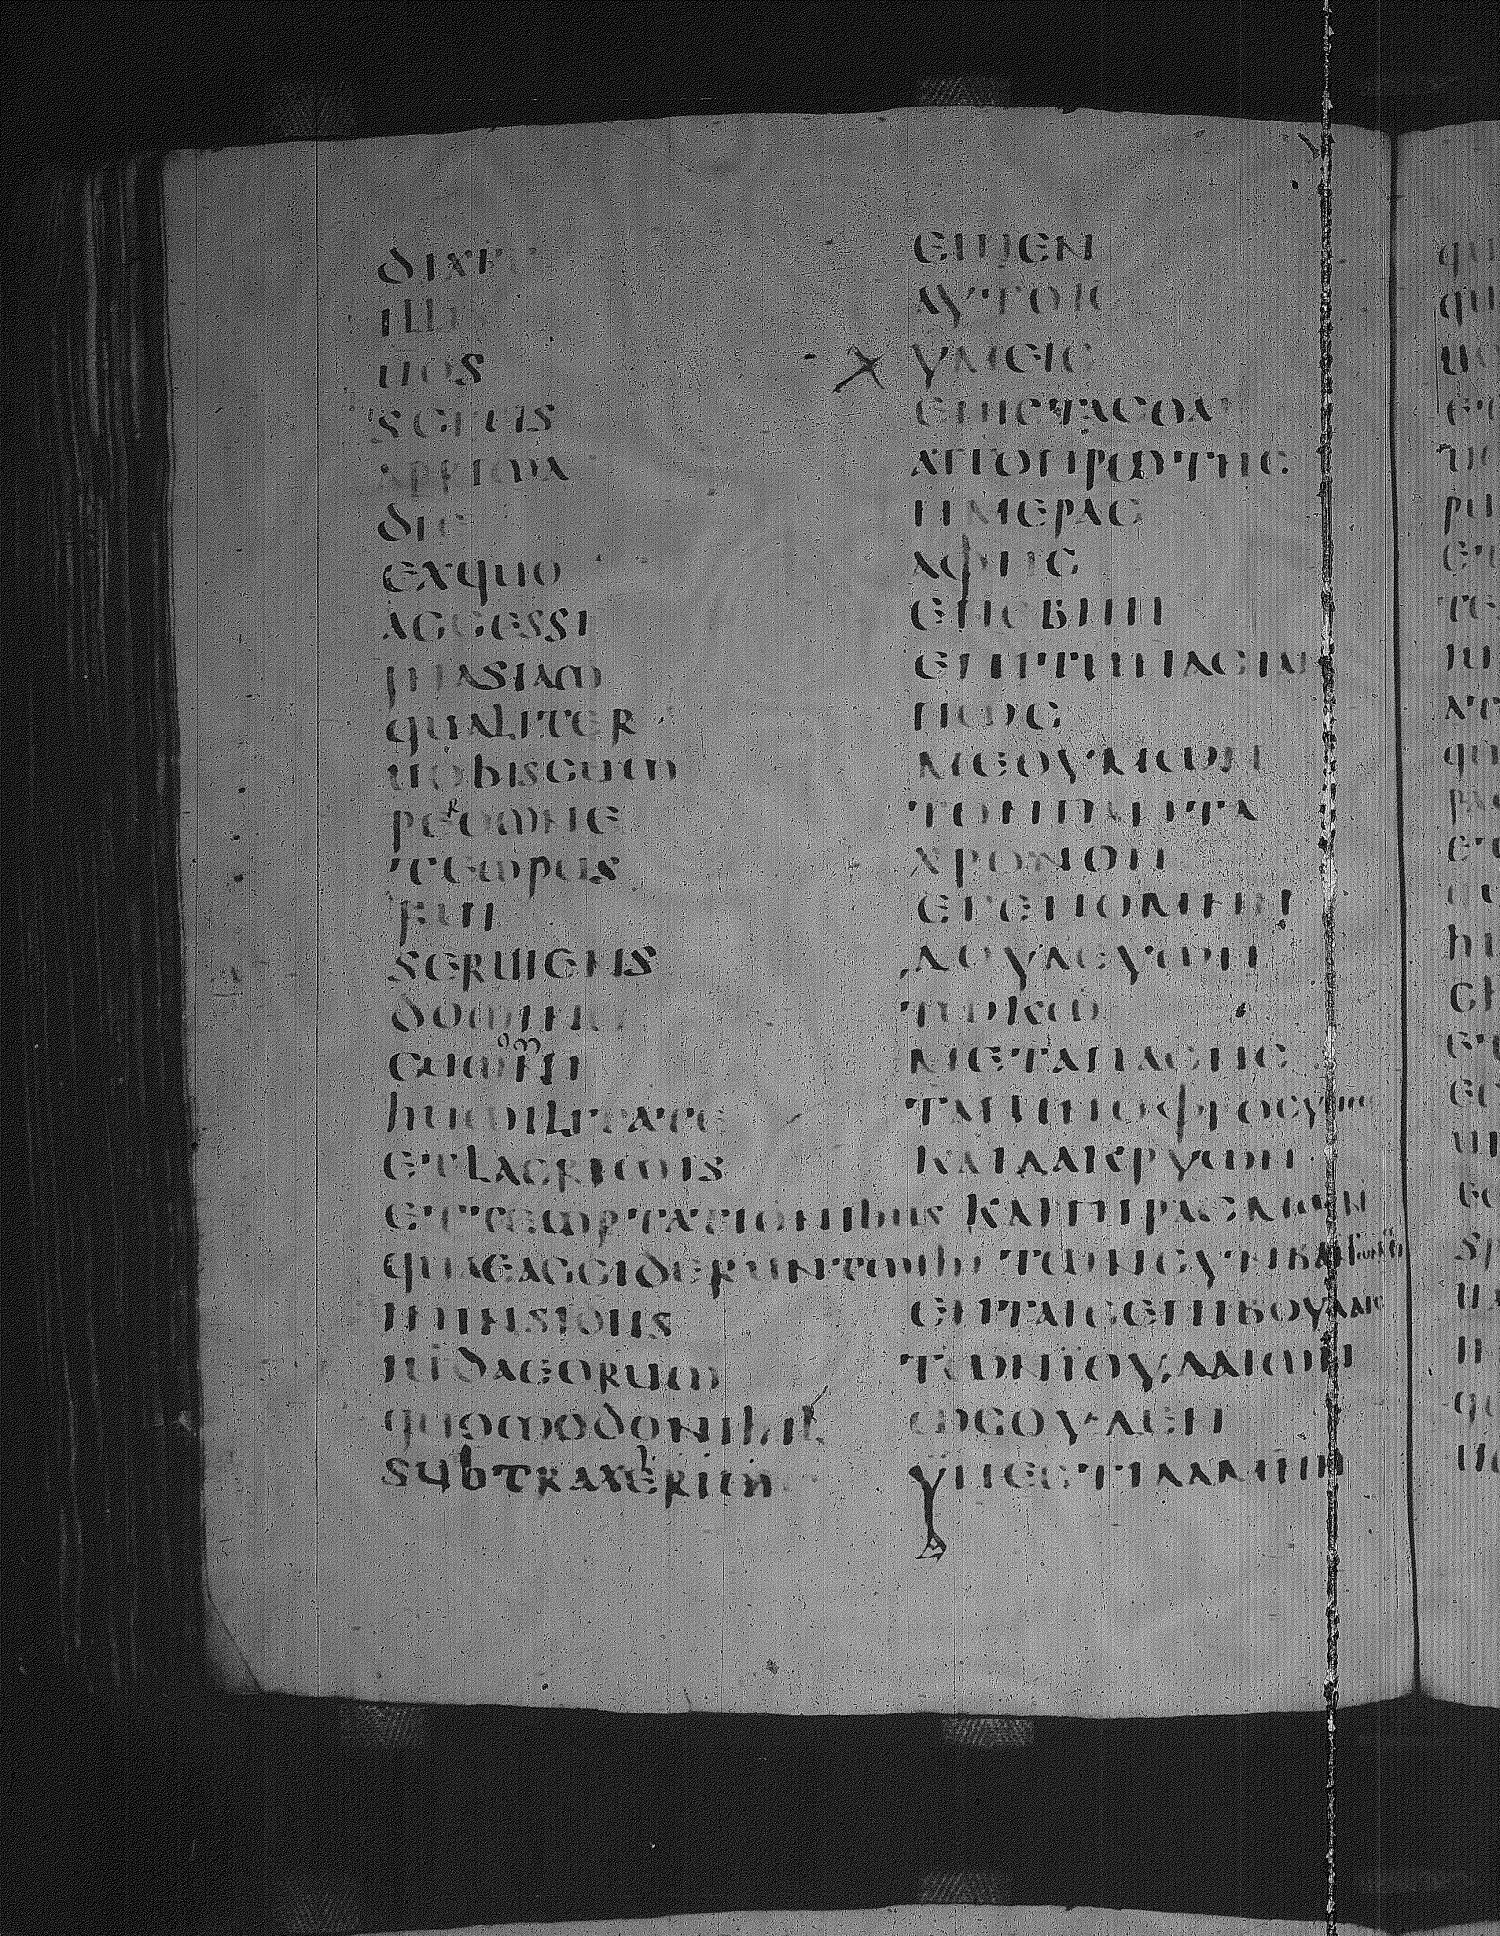 dixit
illis
uos
scitis
a prima
die
ex quo
accessi
in asiam
qualiter
uobiscum
per omne
tempus
fui
seruiens
domino
cum omni
humilitate
et lacrimis
et temptationibus
quae acciderunt mihi
in insidiis
iudaeorum
quomodo nihil
subtraxerim
ειπεν
αυτοις
υμεις
επιστασθαι
απο πρωτης
ημερας
αφ ης
επεβην
εις την ασιαν
πως
μεθ υμων
τον παντα
χρονον
εγενομην
δουλευων
τω κω
μετα πασης
ταπινοφροσυνης
και δακρυων
και πιρασμων
των συνβαντων μοι
εν ταις επιβουλαις
των ιουδαιων
ως ουδεν
υπεστιλαμην